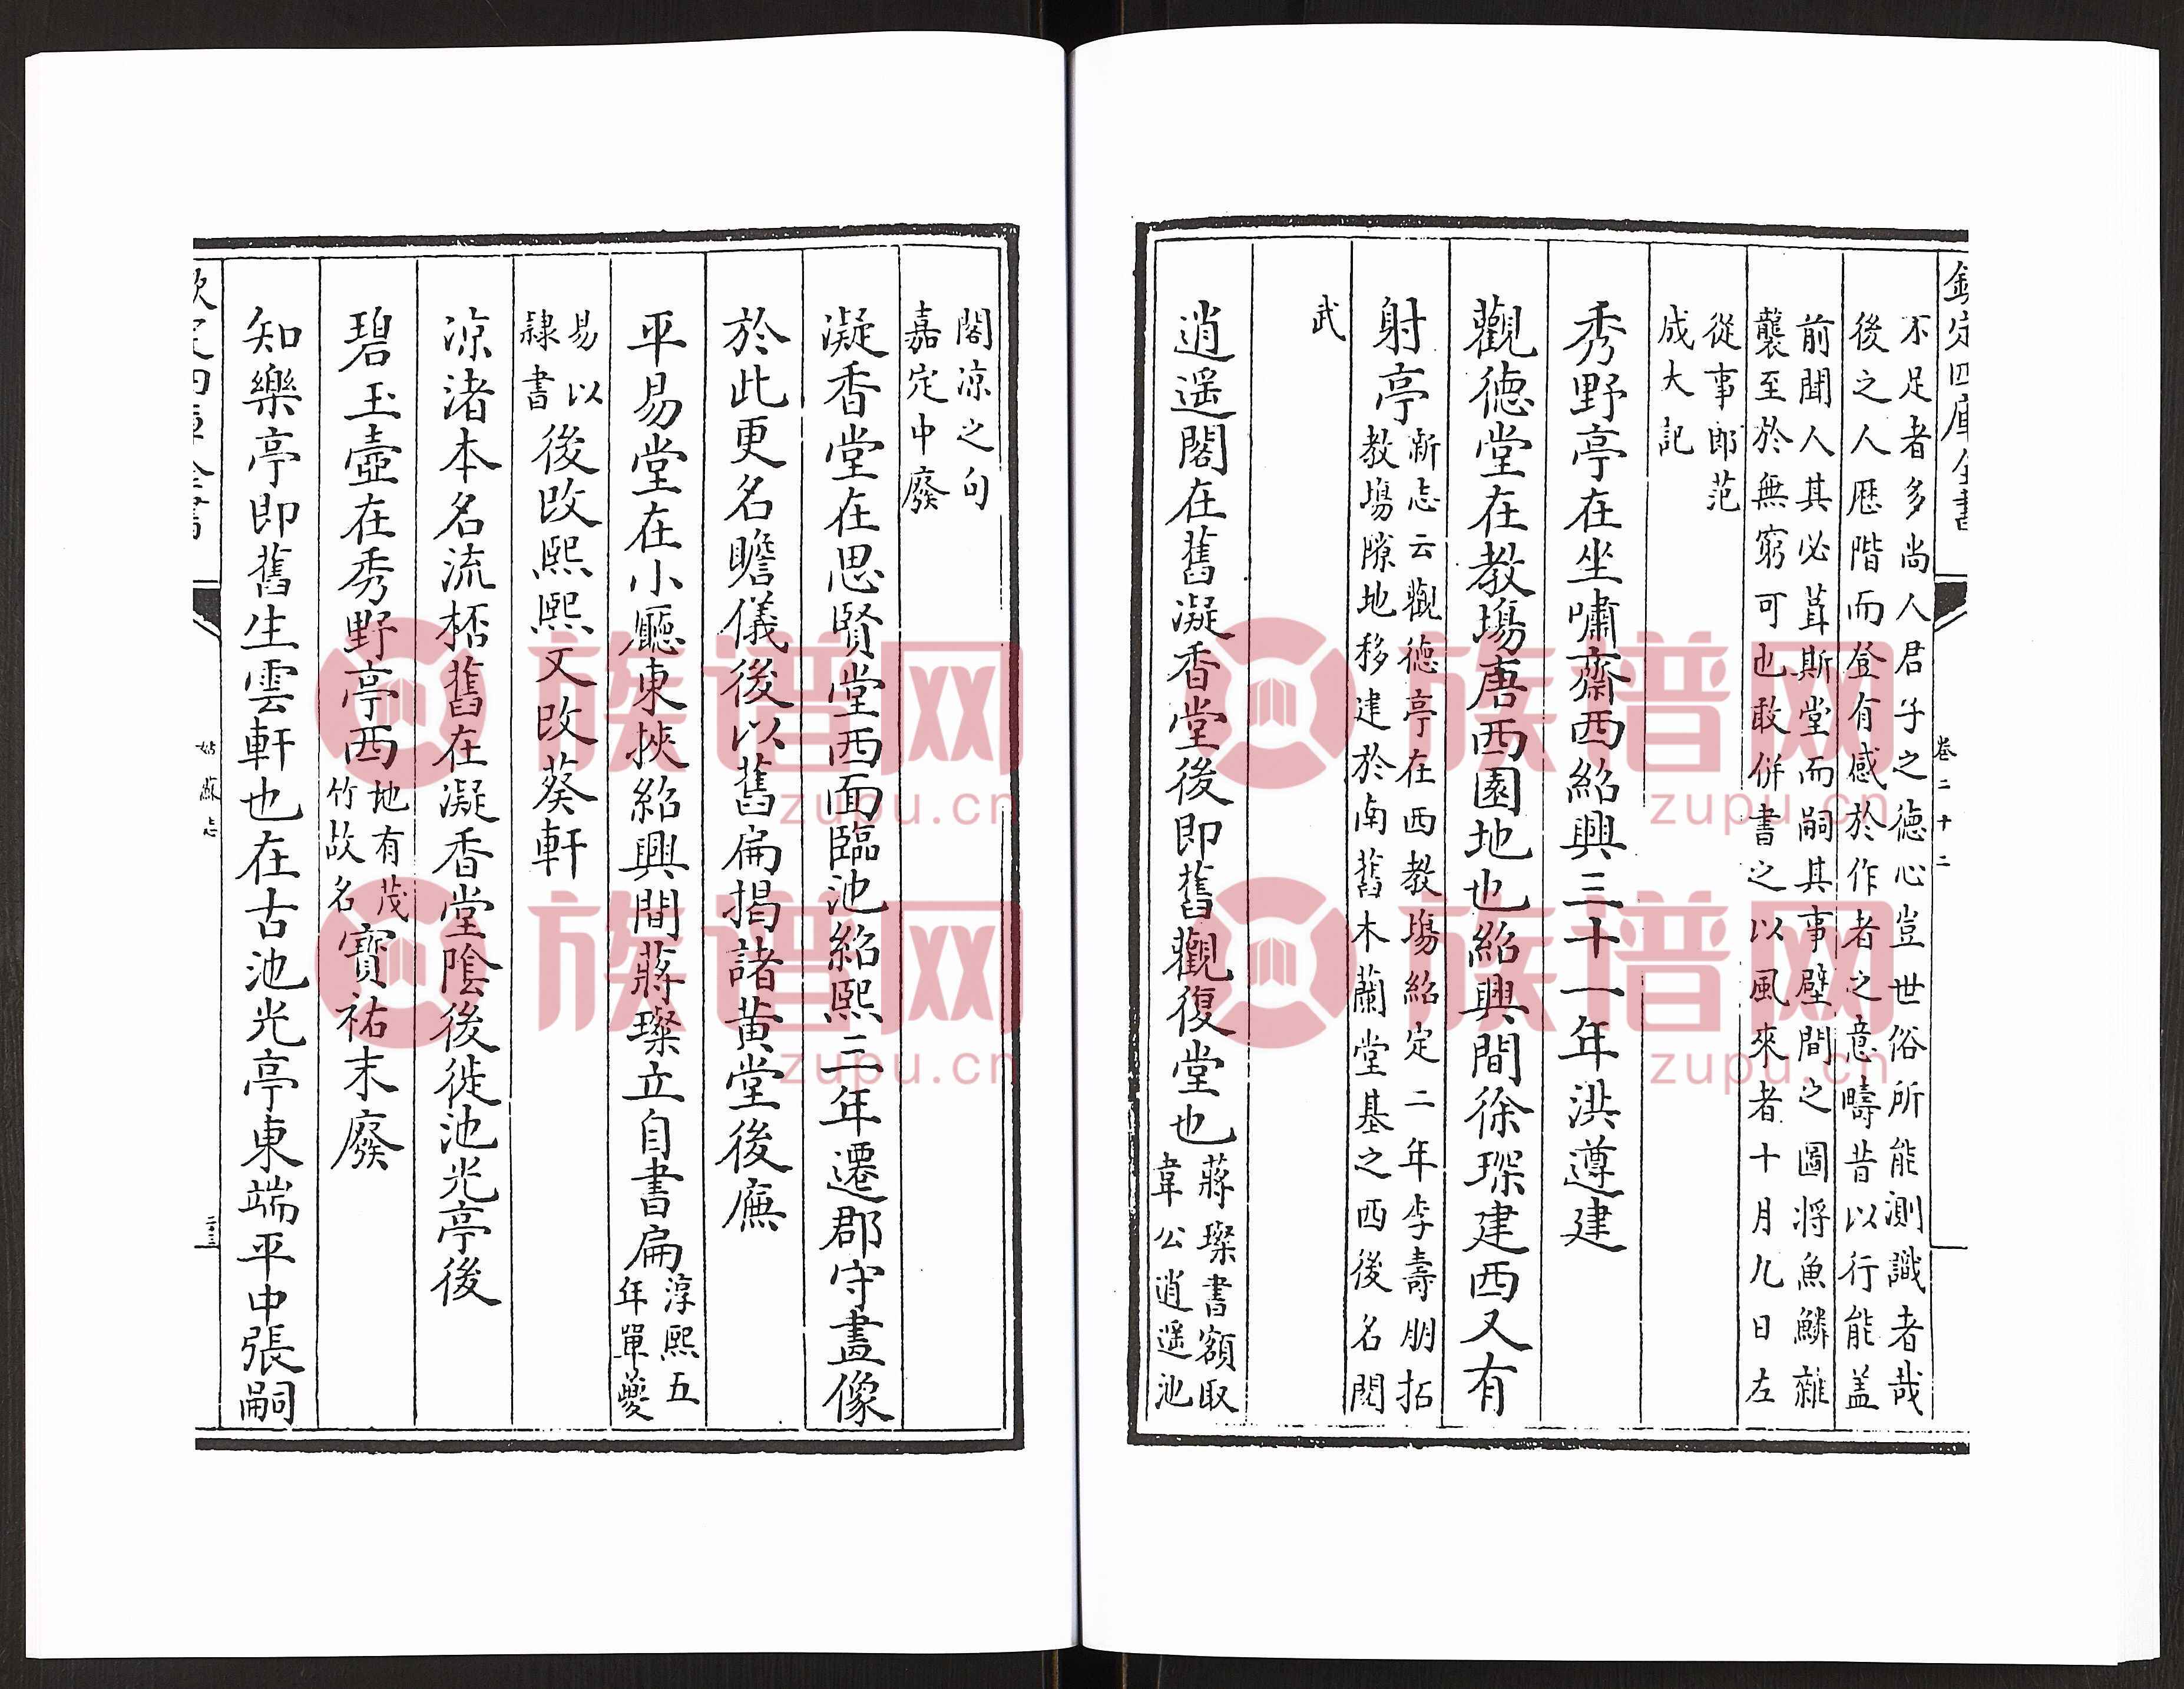 欽定四庫全書
卷二十二
不足者多尚人君子之徳心豈世俗所能測識者哉
後之人厯階而登有感於作者之意疇昔以行能盖
前聞人其必葺斯堂而嗣其事壁間之圖將魚鱗雜
襲至於無窮可也敢併書之以風來者十月九日左
從事郎范
成大記
秀野亭在坐嘯齋西紹興三十一年洪遵建
觀徳堂在教塲唐西園地也紹興間徐琛建西又有
射亭
新志云觀徳亭在西教塲紹定二年李壽朋拓
教塲隙地移建於南舊木蘭堂基之西後名閲
武
逍遥閣在舊凝香堂後即舊觀復堂也
蔣璨書額取
韋公逍遥池
閣凉之句
嘉定中廢
凝香堂在思賢堂西面臨池紹熙三年遷郡守畫像
於此更名瞻儀後以舊扁揭諸黄堂後廡
平易堂在小廳東挾紹興間蔣璨立自書扁
淳熙五
年單夔
易以
隷書
後改熙熙又改葵軒
凉渚本名流桮舊在凝香堂隂後徙池光亭後
碧玉壺在秀野亭西
地有茂
竹故名
寳祐末廢
知樂亭即舊生雲軒也在古池光亭東端平中張嗣
欽定四庫全書
姑蘇志
二三
族谱网
zupu.cn
族谱网
zupu.cn
族谱网
zupu.cn
族谱网
zupu.cn